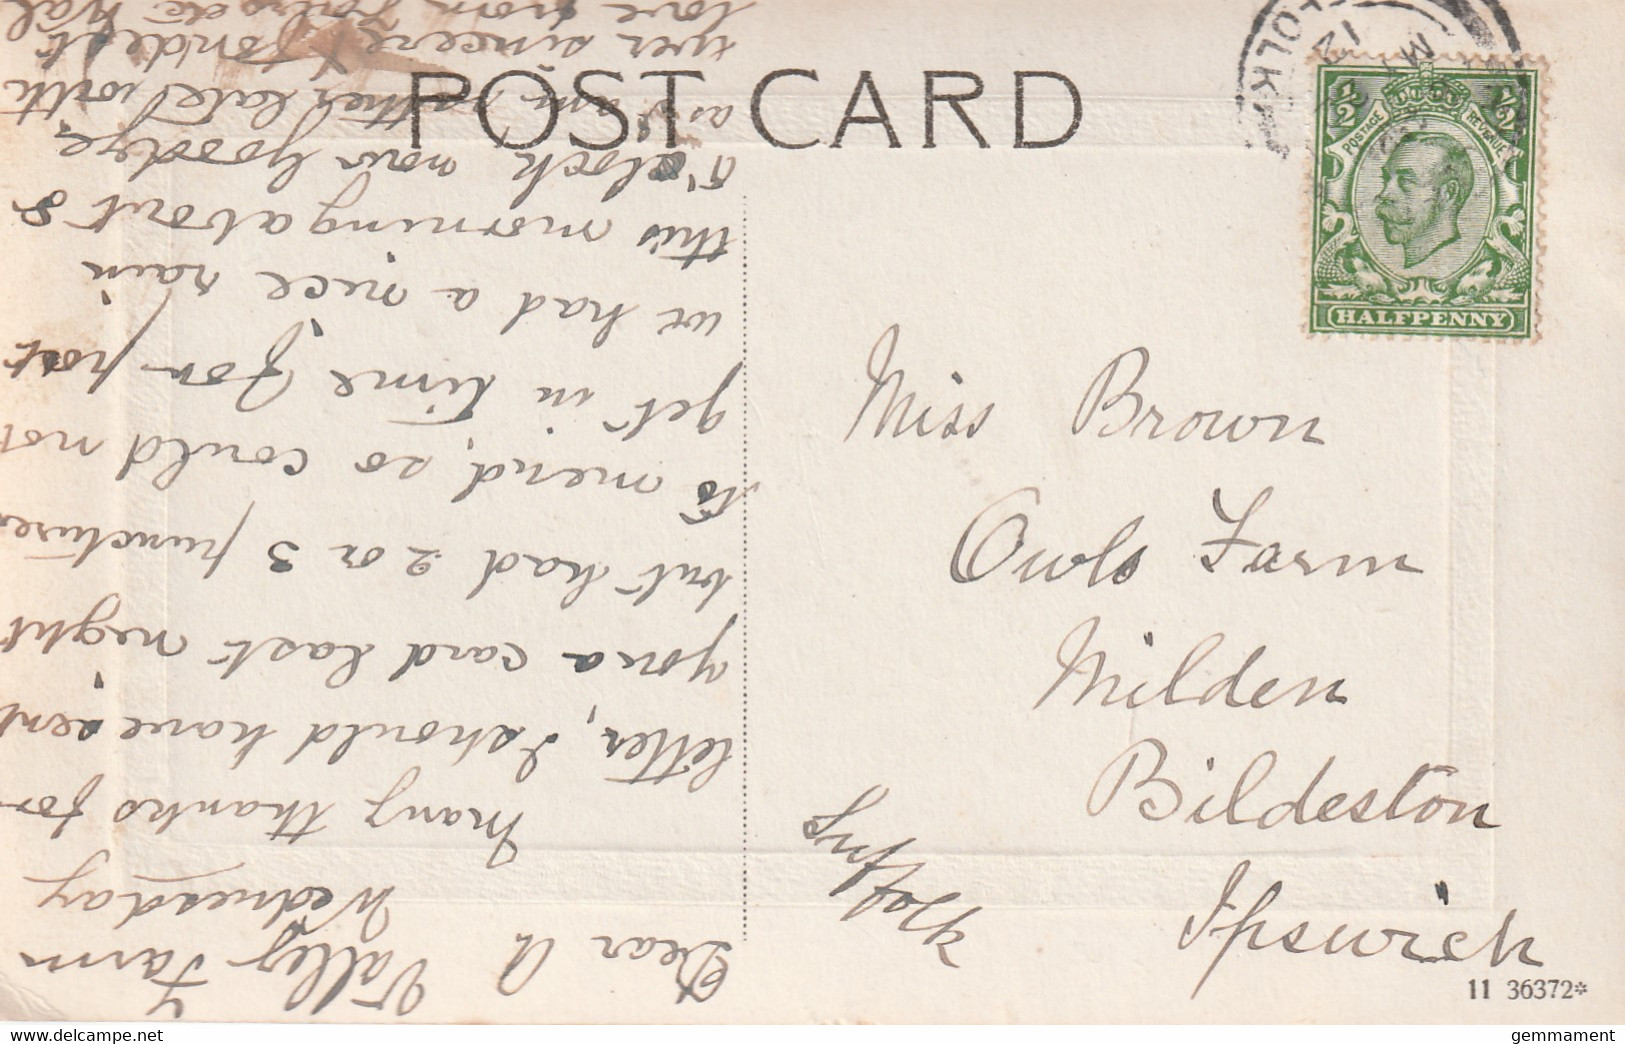 POST CARD
FOLK
MY
12
½
½
POSTAGE
REVENUE
HALFPENNY
Miss Brown
Owls Farm
Milden
Bildeston
Ipswich
Valley Farm
Wednesday
Dear A
Many thanks for
letter, I should have sent
you a card last night
but had 2 or 3 punctures
to mend, so could not
get in time for post
we had a nice rain
this morning about 8
o'clock now Goodbye
as I'm rather late with
ever sincere & fondest
love from
11 36372*
gemmament